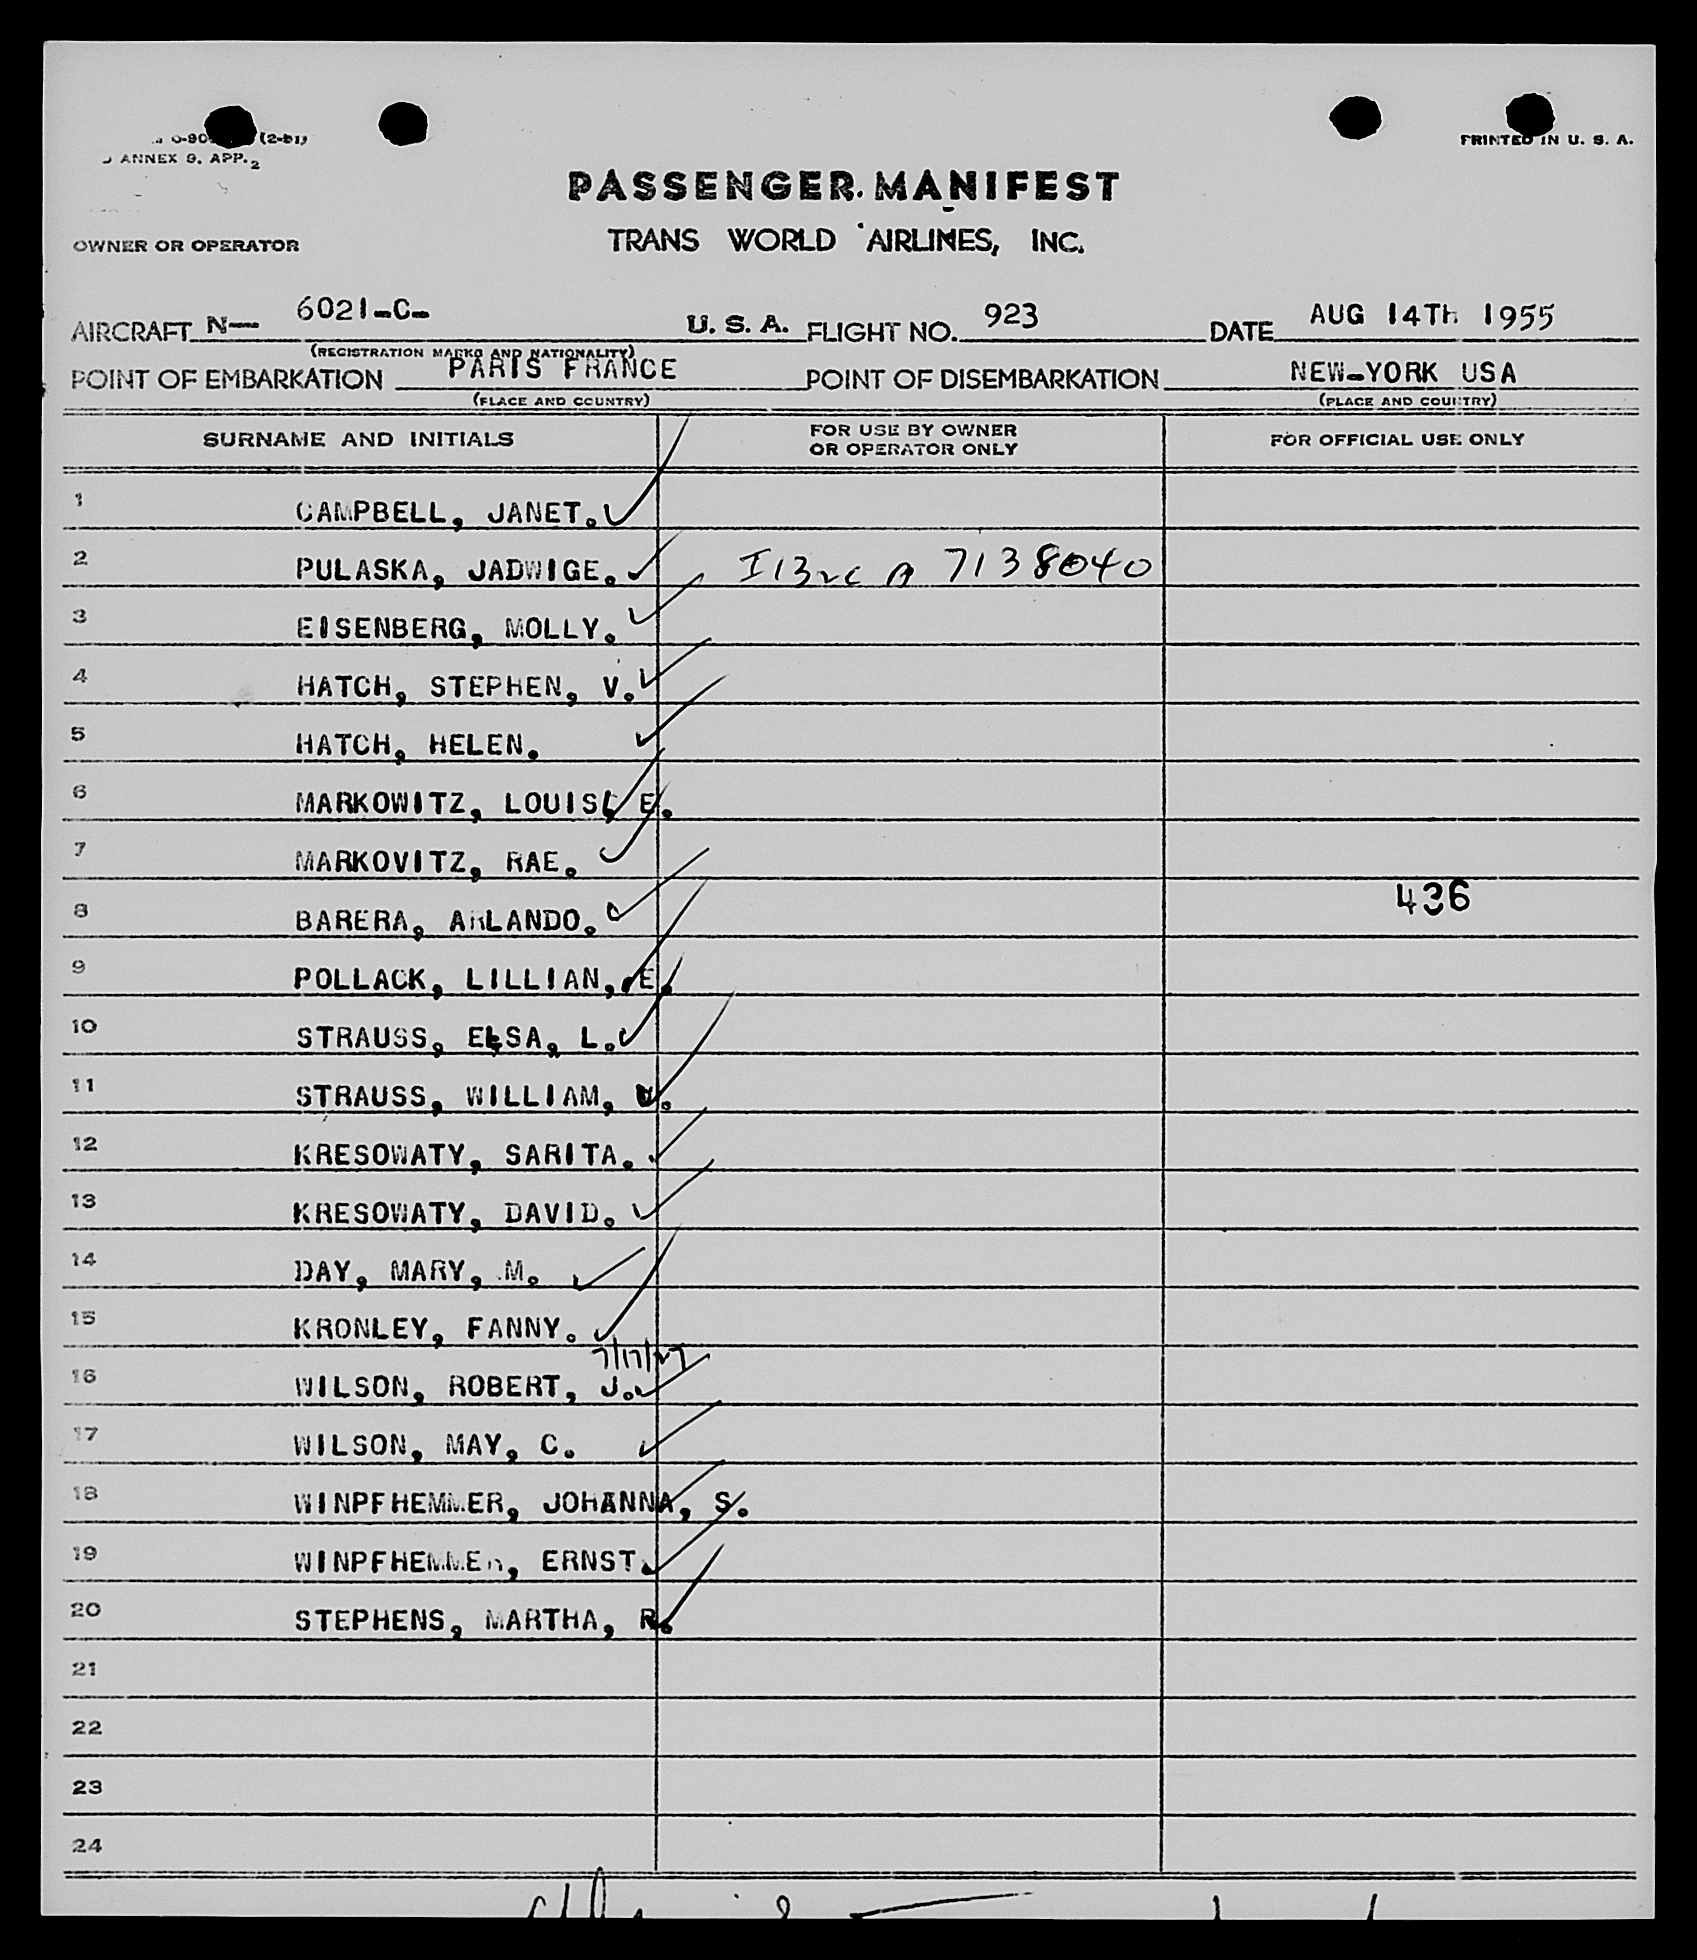 (2-51)
ANNEX 9, APP. 2
PRINTED IN U. S. A.
PASSENGER MANIFEST
OWNER OR OPERATOR TRANS WORLD AIRLINES, INC.
AIRCRAFT N— 6021-C- U. S. A. FLIGHT NO. 923 DATE AUG 14TH 1955
(REGISTRATION MARKS AND NATIONALITY)
POINT OF EMBARKATION PARIS FRANCE POINT OF DISEMBARKATION NEW-YORK USA
(PLACE AND COUNTRY) (PLACE AND COUNTRY)
SURNAME AND INITIALS FOR USE BY OWNER OR OPERATOR ONLY FOR OFFICIAL USE ONLY
1 CAMPBELL, JANET.
2 PULASKA, JADWIGE. A 7138040
3 EISENBERG, MOLLY.
4 HATCH, STEPHEN, V.
5 HATCH, HELEN.
6 MARKOWITZ, LOUIS, E.
7 MARKOVITZ, RAE.
8 BARERA, ARLANDO. 436
9 POLLACK, LILLIAN, E.
10 STRAUSS, ELSA, L.
11 STRAUSS, WILLIAM,
12 KRESOWATY, SARITA.
13 KRESOWATY, DAVID.
14 DAY, MARY, M.
15 KRONLEY, FANNY.
7/17/27
16 WILSON, ROBERT, J.
17 WILSON, MAY, C.
18 WINPFHEMMER, JOHANNA, S.
19 WINPFHEMMER, ERNST.
20 STEPHENS, MARTHA, R.
21
22
23
24